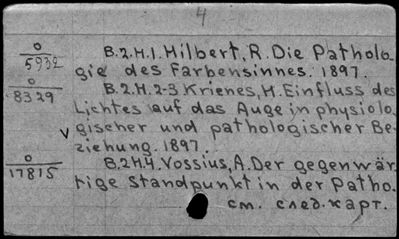 4
0
5932
B.2.H.1. Hilbert, R. Die Patholo-
gie des Farbensinnes. 1897.
0
8329
B.2.H.2-3 Krienes, H. Einfluss des
Lichtes auf das Auge in physiolo-
v gischer und pathologischer Be-
ziehung. 1897.
0
17815
B.2.H.4. Vossius, A. Der gegenwär-
tige Standpunkt in der Patho.
см. след. карт.